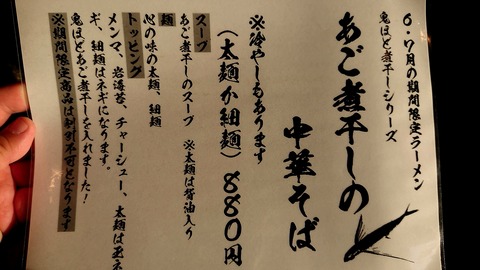 6・7月の期間限定ラーメン
鬼ほど煮干しシリーズ
あご煮干しの
中華そば
※冷やしもあります
(太麺か細麺) 880円
スープ
あご煮干しのスープ ※太麺は背油入り
麺
心の味の太麺、細麺
トッピング
メンマ、岩海苔、チャーシュー、太麺は玉ネ
ギ、細麺はネギになります。
鬼ほどあご煮干しを入れました!
※期間限定商品は割引不可となります